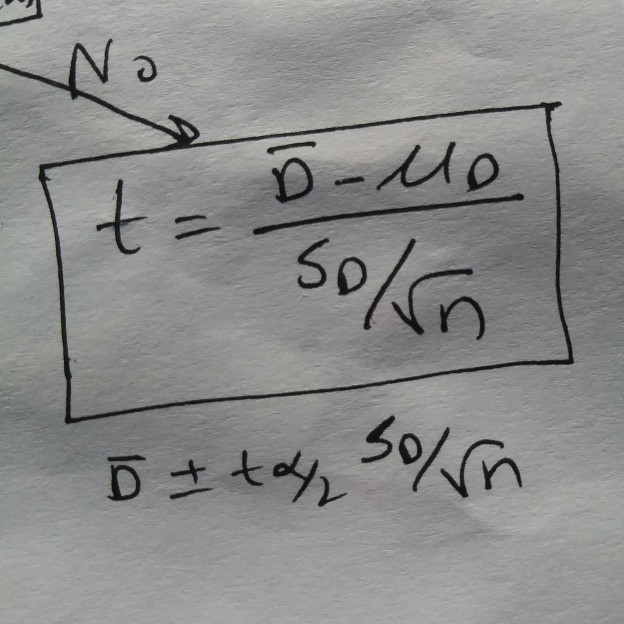 No
t = D̅ - μD / SD/√n
D̅ ± tα/2 SD/√n